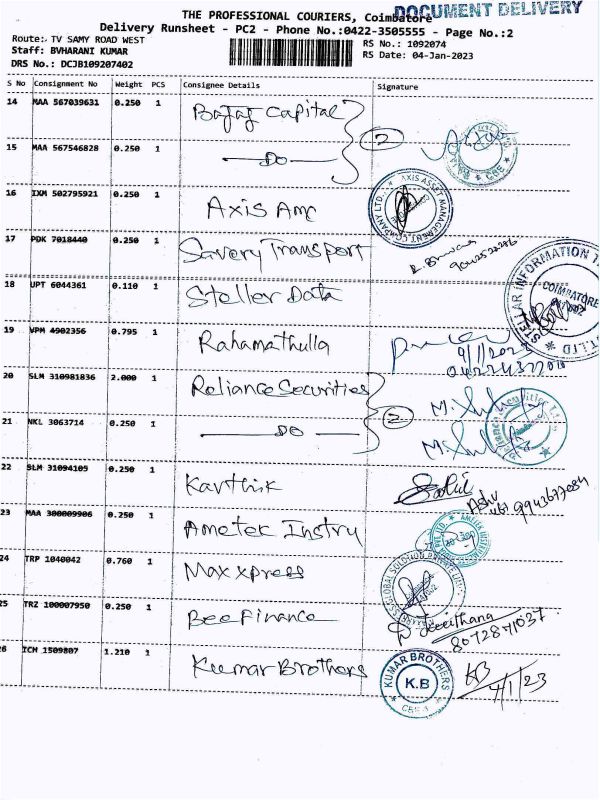 THE PROFESSIONAL COURIERS, Coimbatore
DOCUMENT DELIVERY
Delivery Runsheet - PC2 - Phone No.:0422-3505555 - Page No.:2
Route:- TV SAMY ROAD WEST
RS No.: 1092074
Staff: BVHARANI KUMAR
RS Date: 04-Jan-2023
DRS No.: DCJB109207402
S No Consignment No Weight PCS Consignee Details Signature
14 MAA 567039631 0.250 1 Bajaj Capital
2
15 MAA 567546828 0.250 1 DO
16 IXM 502795921 0.250 1 Axis Amc
AXIS ASSET MANAGEMENT COMPANY LTD.
17 PDK 7018440 0.250 1 Savery Transport
18 UPT 6044361 0.110 1 Steller Data
STELLAR INFORMATION T PVT.LTD
COIMBATORE
19 VPM 4902356 0.795 1 Rahamathulla
20 SLM 310981836 2.000 1 Reliance Securities
2
21 NKL 3063714 0.250 1 DO
22 SLM 31094105 0.250 1 Karthik
9942677084
23 MAA 300009906 0.250 1 Ametek Instru
24 TRP 1040042 0.760 1 Max xpress
25 TRZ 100007950 0.250 1 Bee Finance
26 TCH 1509807 1.210 1 Kumar Brothers
KUMAR BROTHERS
K.B
KB
4/1/23